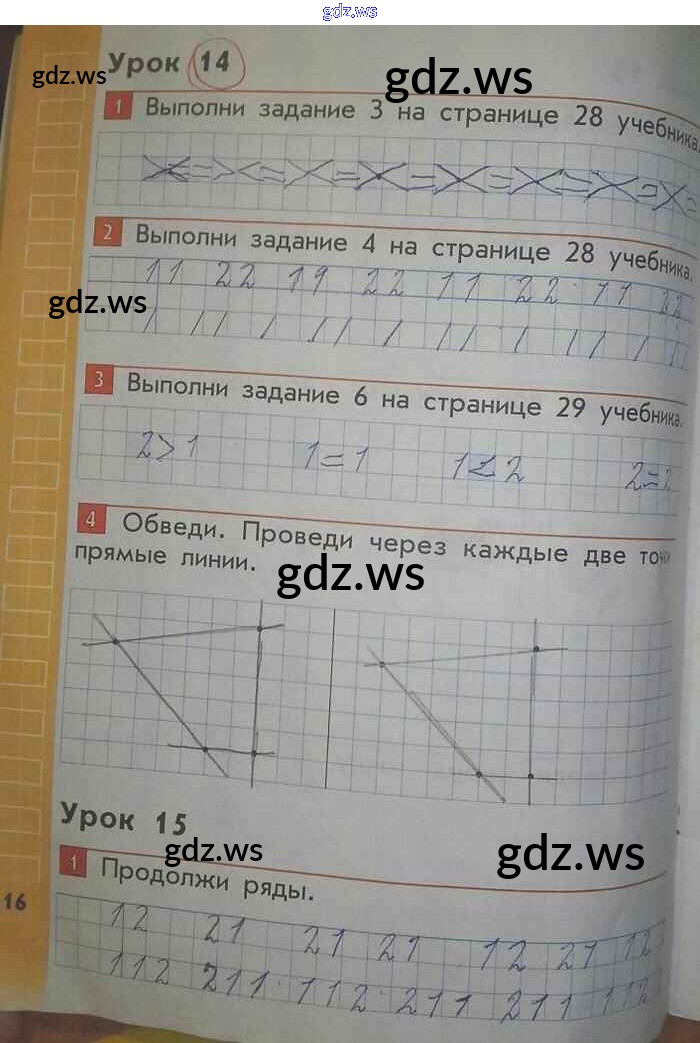 gdz.ws
Урок 14
gdz.ws
gdz.ws
1 Выполни задание 3 на странице 28 учебника.
> < = > < = > < = > < = > < = > < = > < = > < =
2 Выполни задание 4 на странице 28 учебника.
11 22 11 22 11 22 11 22
gdz.ws
/ // / // / // / // / //
3 Выполни задание 6 на странице 29 учебника.
2 > 1 1 = 1 1 < 2 2 = 2
4 Обведи. Проведи через каждые две точки
прямые линии.
gdz.ws
Урок 15
gdz.ws
gdz.ws
1 Продолжи ряды.
16
12 21 21 21 12 21 12
112 211 112 211 211 112